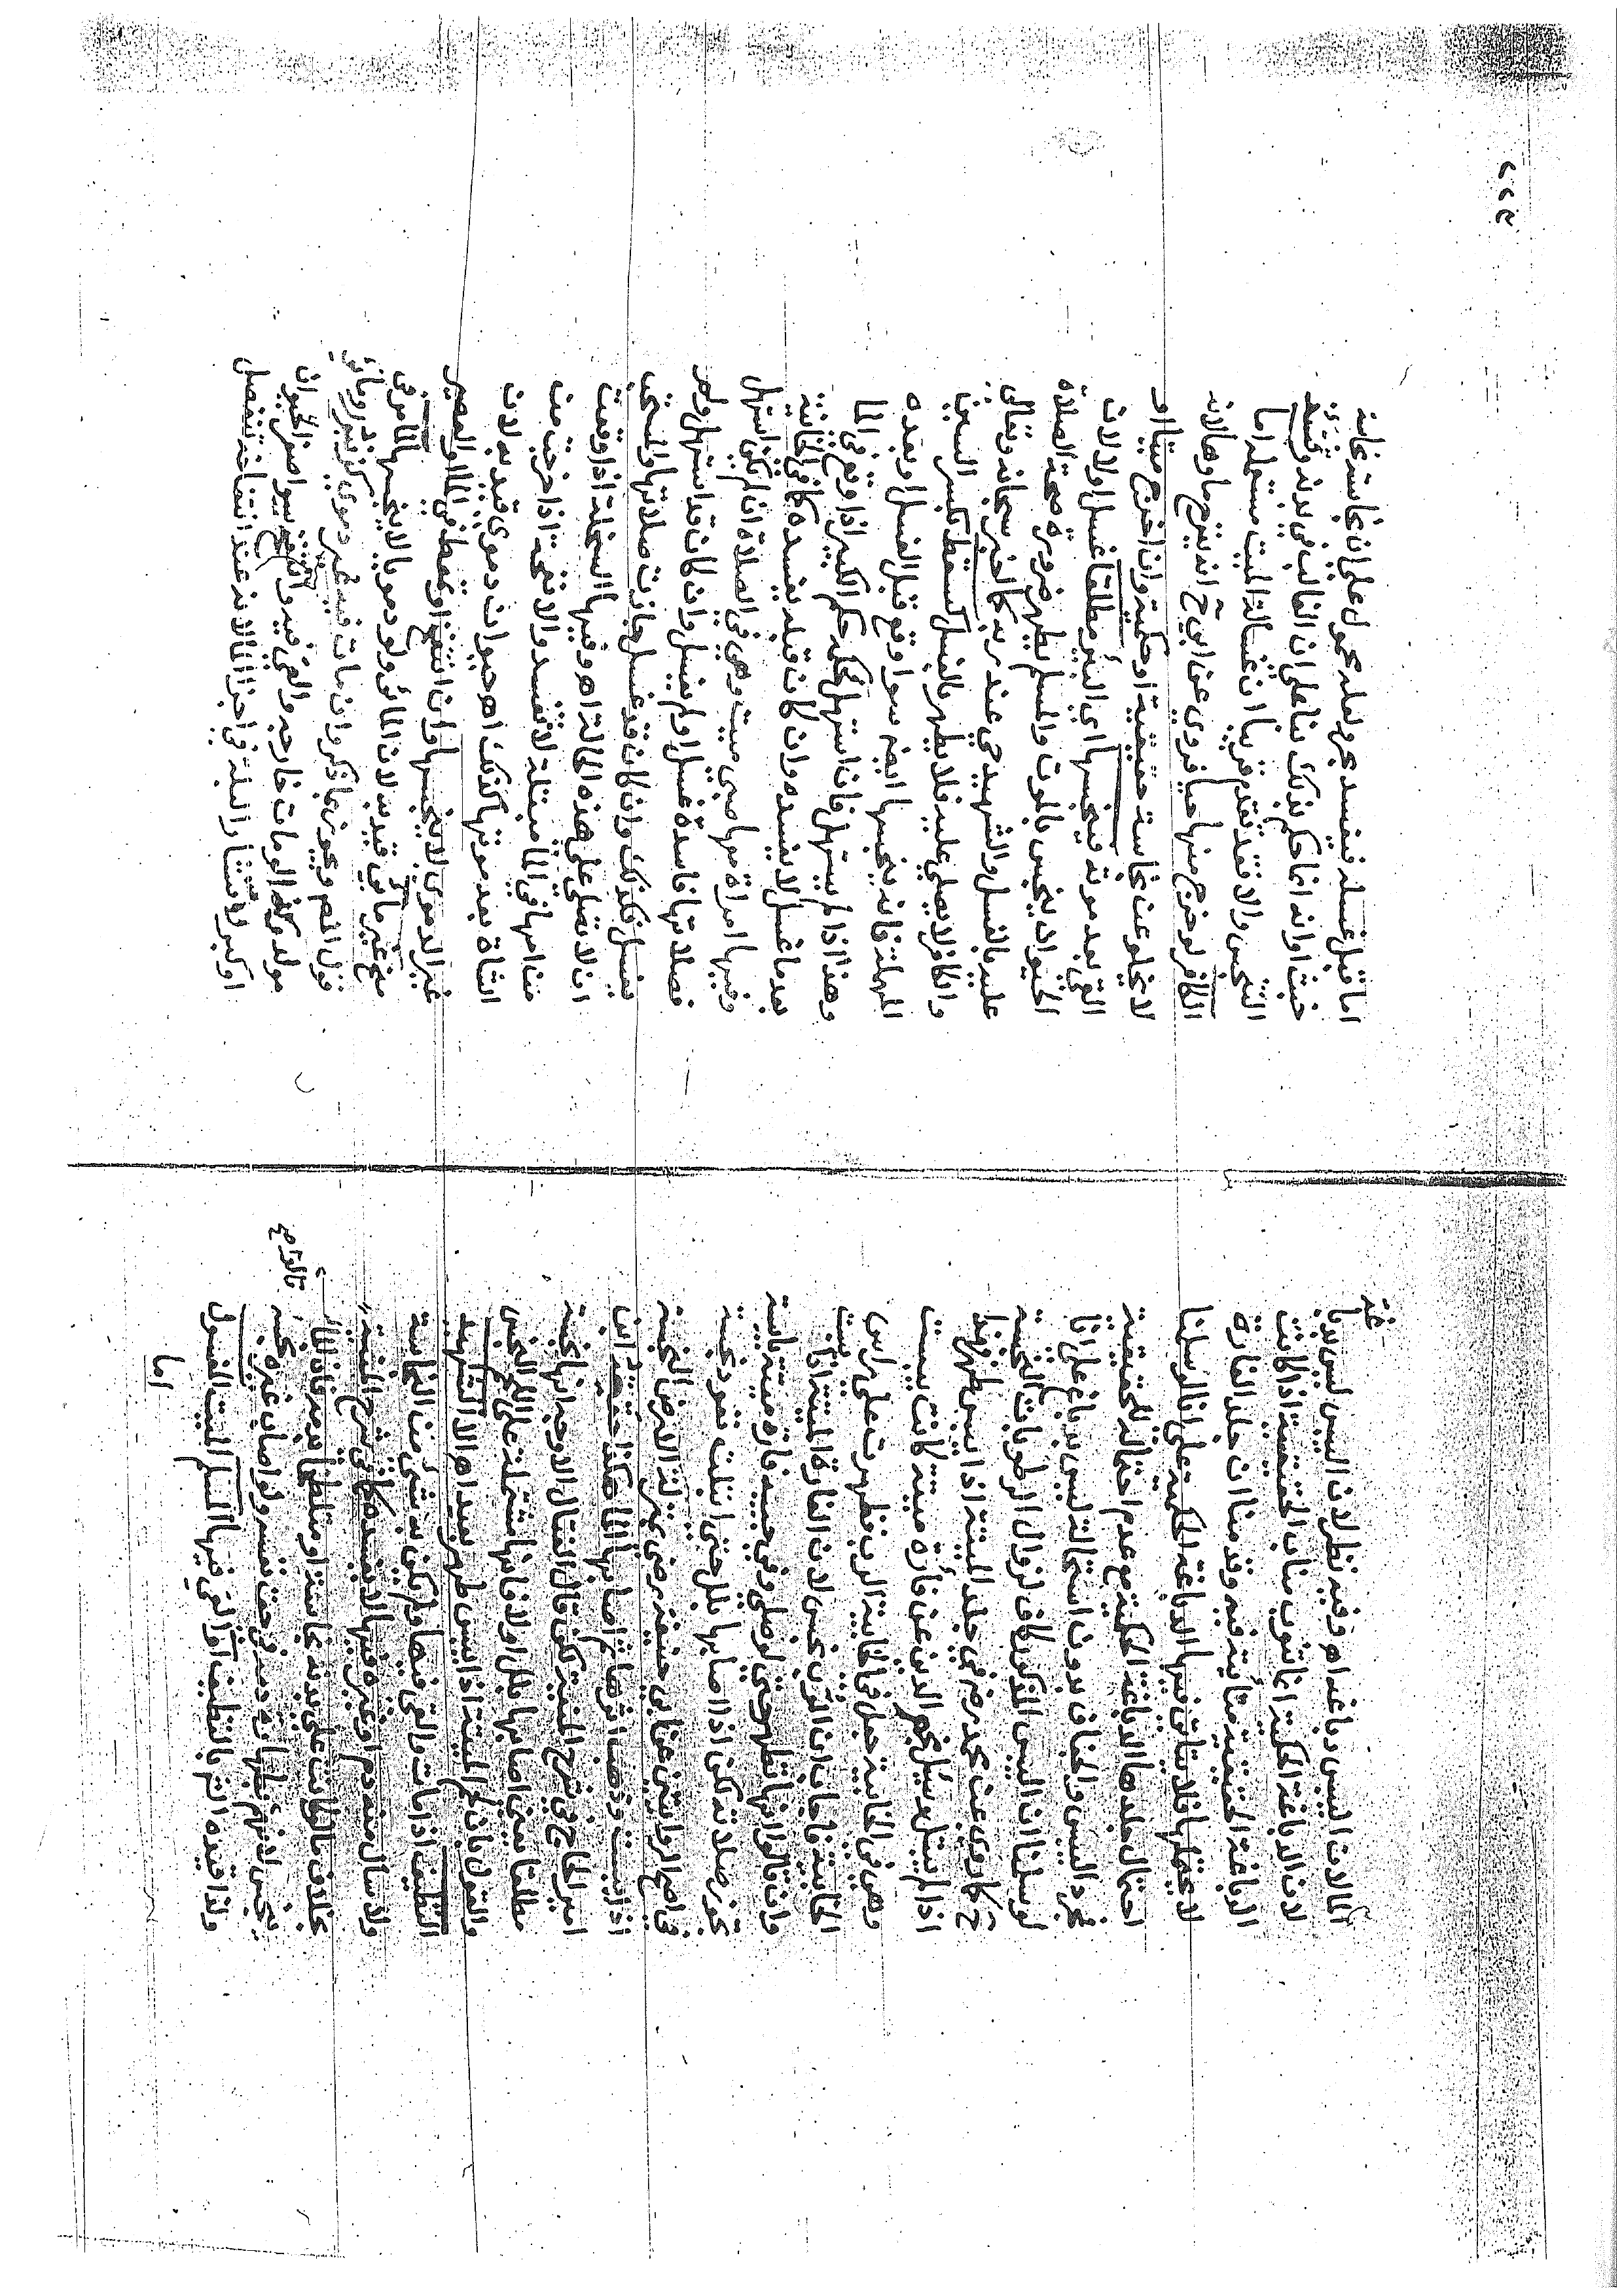 كما لان اليبس دباغة اه وفيه نظر لان اليبس ليس دبا غة
لان الدباغة الحكمية انما تنوب مناب الحقيقية اذا كانت
الدباغة الحقيقية متأتية فيه وقد منا ان جلد الفارة
لا يحتملها فلا يتاتى فيها الدباغة الحكمية على انا لو سلمنا
احتمال جلدها الدباغة الحكمية مع عدم احتماله للحقيقية
فمجرد اليبس والجفاف بدون استحالة ليس بدباغ على انا
لو سلمنا ان اليبس المذكور كاف لزوال الرطوبات النجسة
ح كما روي عن محمد رضي في جلد الميتة اذا يبس طهر فهذا
اذا لم يبتل سئل نجم الدين عن فأرة ميتة كانت يبست
وهي في الخابية جعل في الخابية الرب فظهرت على راس
الخابية فاجاب ان الرب نجس لان الفارة الميتة اذا يبست
وان قالوا انها تطهر حتى لو صلى وفي جيبه فارة ميتة يابسة
تجوز صلاته لكن اذا اصابها بلل حتى ابتلت تعود نجسة
في اصح الروايتين عن ابي حنيفة رضي بمنزلة الارض النجسة
اذا يبست وذهب اثرها ثم اصابها الماء هكذا حققه ابن
امير الحاج في شرح المنية لكن قال الفتال الاوجه انها نجسة
مطلقا يعني اصابها بلل اولا فانها مشتملة على اللحم النجس
والقول بان لحم الميتة اذا يبس طهر بعيد اه الا الشهيد
النظيف اذا مات والقي فيها ولم يكن به شيء من النجاسة
ولا سال منه دم او غيره فيها لا يفسده كما في شرح المنية
بخلاف ما لو كانت على بدنه نجاسة او متلطخا بدمه فان الماء
ينجس لانهم قالوا صح طهارة دمه في حق نفسه ولو اصاب غيره نجسه
ولذا قيده الش بالنظيف او القي فيها المسلم الميت المغسول
اما
٢٢٣
اما قبل غسله فيفسد بحر ولعله محمول على ان نجاسته نجاسة
خبث او انه انما حكم بذلك بناء على ان الغالب في بدنه وقت
التنجس والا فقد تقدم قريبا ان غسالة الميت مستعملة اما
الكافر لو خرج منها حيا فروي عن ابي ح انه ينزح ماوها لانه
لا يخلو عن نجاسة حقيقية او حكمية وان اخرج ميتا او
القي بعد موته فينجسها اي البئر مطلقا غسل اولا لان
الحيوان ينجس بالموت والمسلم يطهر ضرورة صحة الصلاة
عليه بالغسل والشهيد حي عند ربه كما اخبر سبحانه وتعالى
والكافر لا يصلى عليه فلا يطهر بالغسل كسقط بكسر السين
المهملة فانه ينجسها ايضا سوا وقع قبل الغسل او بعده
وهذا اذا لم يستهل فان استهل فحكمه حكم الكبير اذا وقع في الما
بعد ما غسل لا يفسده وان كان قبله يفسده كما في الخانية
وفيها امراة صلت وهي حاملة صبي ميت وهي في الصلاة ان لم يكن استهل
فصلاتها فاسدة غسل او لم يغسل وان كان قد استهل ولم
يغسل فكذلك وان كان قد غسل جازت صلاتها والمستحب
ان لا تصلي على هذه الحالة اه وفيها السخلة اذا وقعت
من امها في الما مبتلة لا تفسده والانفحة اذا خرجت من
الشاة بعد موتها كذلك اه حيوان دموي قيد به لان
غير الدموي لا ينجسها وان انتفخ او تمعط في الما او العصير
من غير مائي قيد به لان المائي ولو دمويا لا ينجسها لما مر في
قول المصم ويجوز بما ذكر وان مات فيه غير دموي كزنبور ومائي
مولد كسمك ولو مات خارجه والقي فيه وانتفخ سوا صغر الحيوان
او كبر